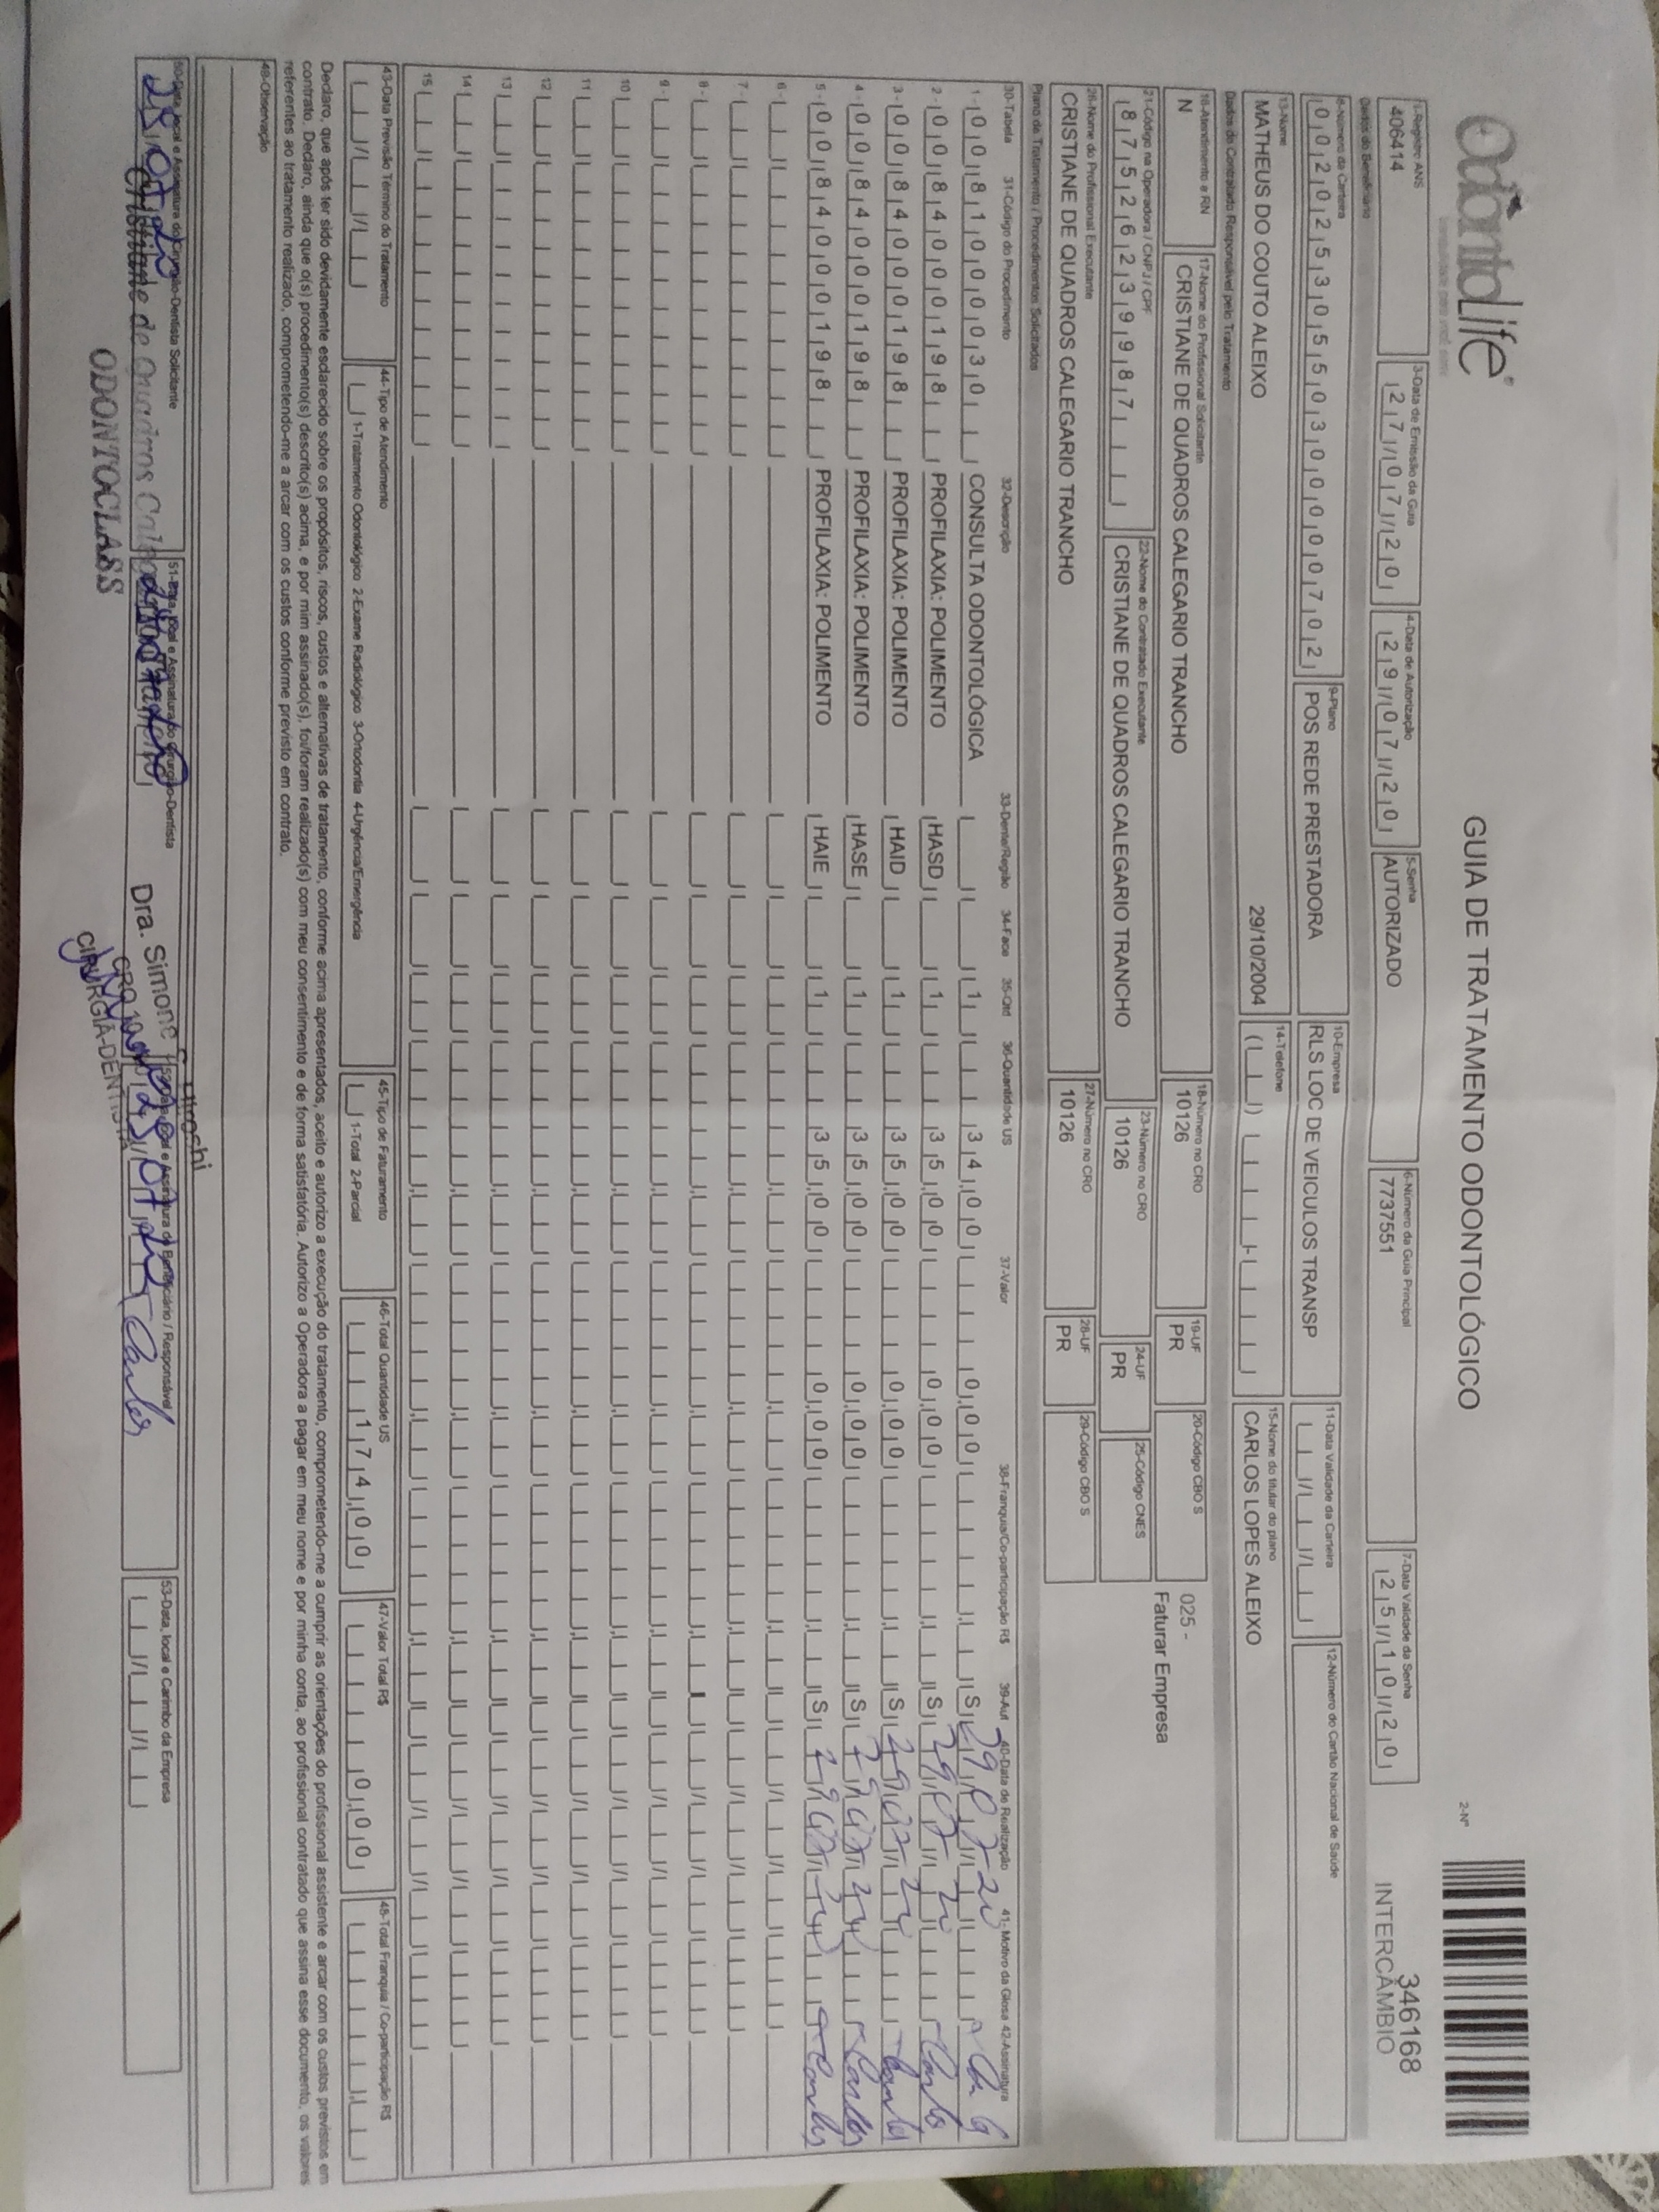 OdontoLife®
GUIA DE TRATAMENTO ODONTOLÓGICO
2-Nº
346168
INTERCÂMBIO
1-Registro ANS
406414
3-Data de Emissão da Guia
27/07/20
4-Data de Autorização
29/07/20
5-Senha
AUTORIZADO
6-Número da Guia Principal
7737551
7-Data Validade da Senha
25/10/20
Dados do Beneficiário
8-Número da Carteira
00202530550300000702
9-Plano
POS REDE PRESTADORA
10-Empresa
RLS LOC DE VEICULOS TRANSP
11-Data Validade da Carteira
12-Número do Cartão Nacional de Saúde
13-Nome
MATHEUS DO COUTO ALEIXO
29/10/2004
14-Telefone
15-Nome do titular do plano
CARLOS LOPES ALEIXO
Dados do Contratado Responsável pelo Tratamento
16-Atendimento a RN
N
17-Nome do Profissional Solicitante
CRISTIANE DE QUADROS CALEGARIO TRANCHO
18-Número no CRO
10126
19-UF
PR
20-Código CBO S
025 -
Faturar Empresa
21-Código na Operadora / CNPJ / CPF
87526239987
22-Nome do Contratado Executante
CRISTIANE DE QUADROS CALEGARIO TRANCHO
23-Número no CRO
10126
24-UF
PR
25-Código CNES
26-Nome do Profissional Executante
CRISTIANE DE QUADROS CALEGARIO TRANCHO
27-Número no CRO
10126
28-UF
PR
29-Código CBO S
Plano de Tratamento / Procedimentos Solicitados
30-Tabela 31-Código do Procedimento 32-Descrição 33-Dente/Região 34-Face 35-Qtd 36-Quantidade US 37-Valor 38-Franquia/Co-participação R$ 39-Aut 40-Data de Realização 41- Motivo da Glosa 42-Assinatura
1 - 00 81000030 CONSULTA ODONTOLÓGICA 1 34,00 0,00 S 29 07 20
2 - 00 84000198 PROFILAXIA: POLIMENTO HASD 1 35,00 0,00 S 29 07 20 Carlos
3 - 00 84000198 PROFILAXIA: POLIMENTO HAID 1 35,00 0,00 S 29 07 20 Carlos
4 - 00 84000198 PROFILAXIA: POLIMENTO HASE 1 35,00 0,00 S 29 07 20 Carlos
5 - 00 84000198 PROFILAXIA: POLIMENTO HAIE 1 35,00 0,00 S 29 07 20 Carlos
6 -
7 -
8 -
9 -
10
11
12
13
14
15
43-Data Previsão Término do Tratamento
44-Tipo de Atendimento
1-Tratamento Odontológico 2-Exame Radiológico 3-Ortodontia 4-Urgência/Emergência
45-Tipo de Faturamento
1-Total 2-Parcial
46-Total Quantidade US
174,00
47-Valor Total R$
0,00
48-Total Franquia / Co-participação R$
Declaro, que após ter sido devidamente esclarecido sobre os propósitos, riscos, custos e alternativas de tratamento, conforme acima apresentados, aceito e autorizo a execução do tratamento, comprometendo-me a cumprir as orientações do profissional assistente e arcar com os custos previstos em
contrato. Declaro, ainda que o(s) procedimento(s) descrito(s) acima, e por mim assinado(s), foi/foram realizado(s) com meu consentimento e de forma satisfatória. Autorizo a Operadora a pagar em meu nome e por minha conta, ao profissional contratado que assina esse documento, os valores
referentes ao tratamento realizado, comprometendo-me a arcar com os custos conforme previsto em contrato.
49-Observação
50-Data, local e Assinatura do Cirurgião-Dentista Solicitante
51-Data, local e Assinatura do Cirurgião-Dentista
52-Data, local e Assinatura do Beneficiário / Responsável
Carlos
53-Data, local e Carimbo da Empresa
Cristiane de Quadros
ODONTOCLASS
Dra. Simone
CIRURGIÃ-DENTISTA